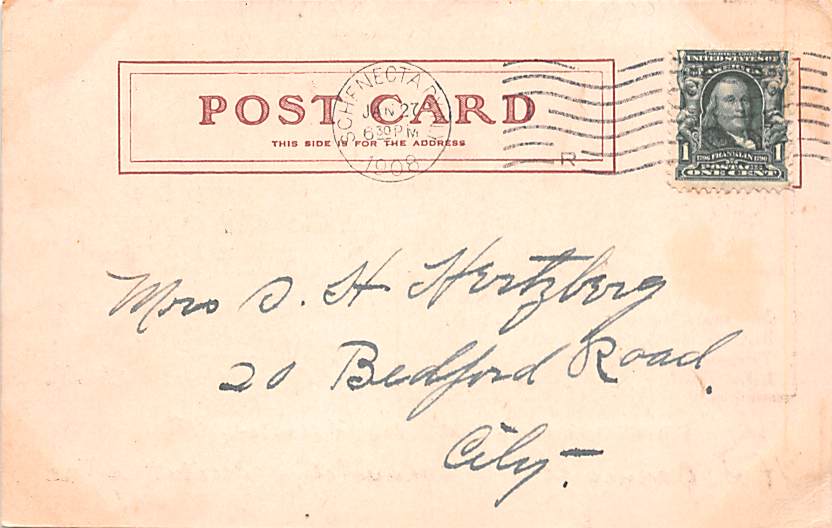 POST CARD
THIS SIDE IS FOR THE ADDRESS
SCHENECTADY, N.Y.
JAN 27
6 30 P M
1908
R
SERIES 1902
UNITED STATES OF
AMERICA
1 1706 FRANKLIN 1790 1
POSTAGE
ONE CENT
Mrs S. H Hertzberg
20 Bedford Road.
City-